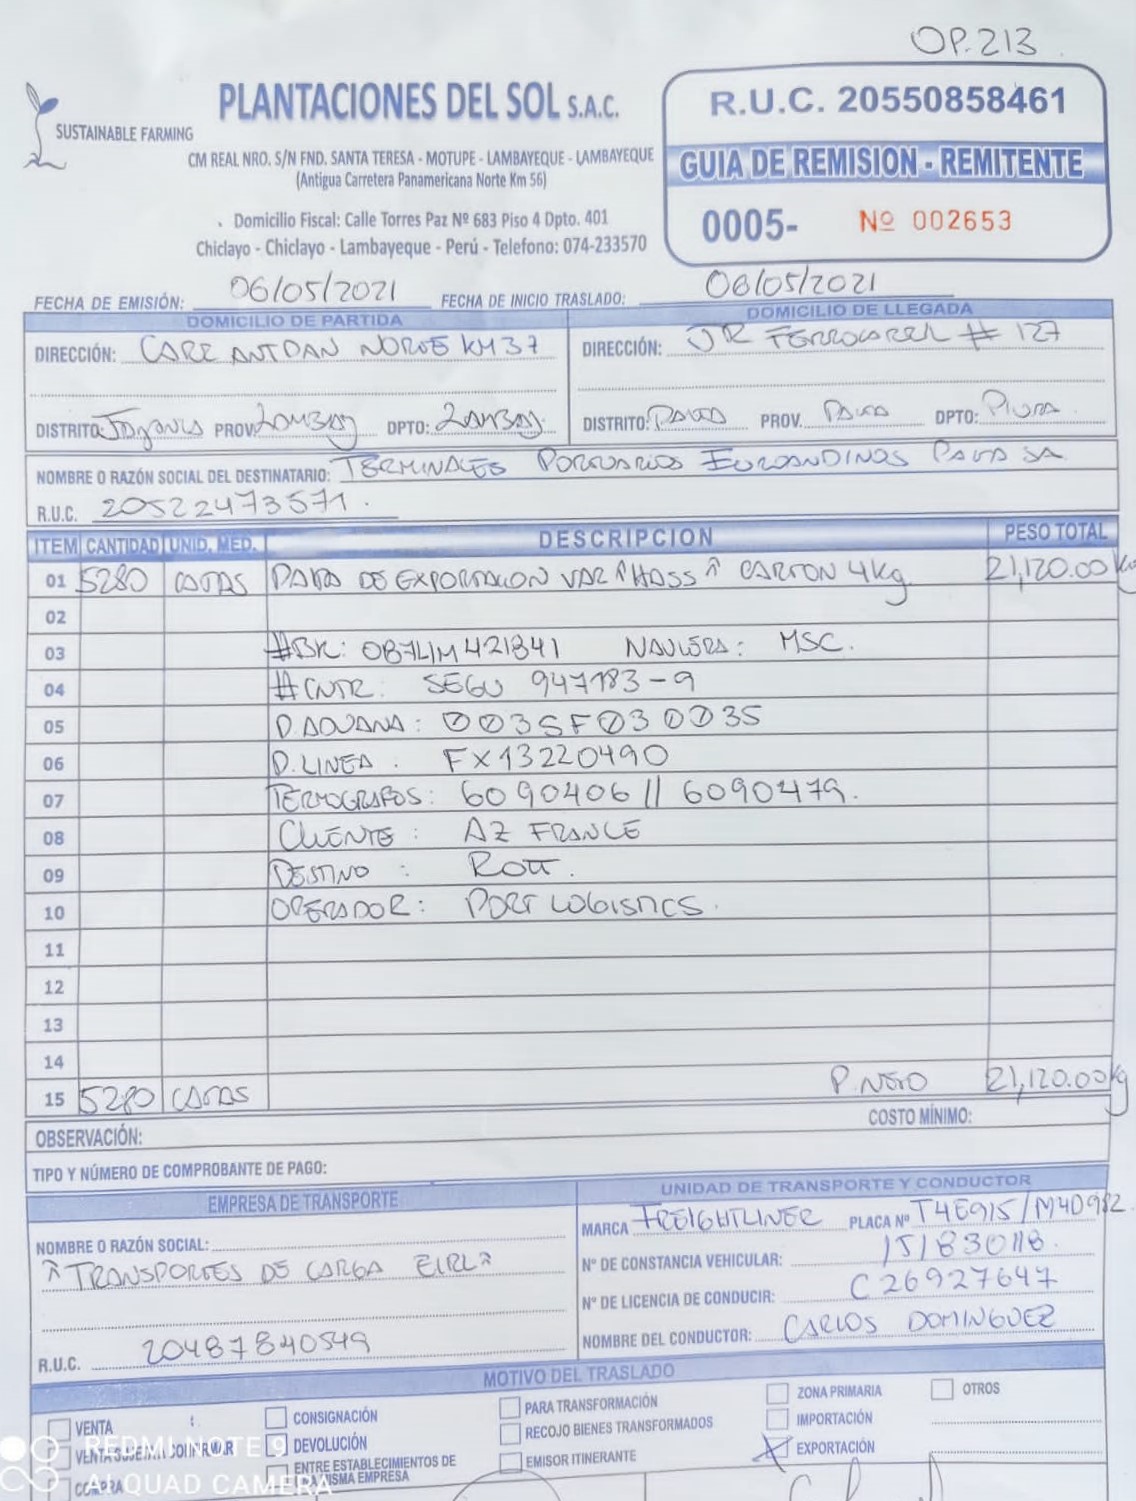 OP. 213
SUSTAINABLE FARMING
PLANTACIONES DEL SOL S.A.C.
CM REAL NRO. S/N FND. SANTA TERESA - MOTUPE - LAMBAYEQUE - LAMBAYEQUE
(Antigua Carretera Panamericana Norte Km 56)
Domicilio Fiscal: Calle Torres Paz Nº 683 Piso 4 Dpto. 401
Chiclayo - Chiclayo - Lambayeque - Perú - Telefono: 074-233570
R.U.C. 20550858461
GUIA DE REMISION - REMITENTE
0005- Nº 002653
FECHA DE EMISIÓN: 06/05/2021 FECHA DE INICIO TRASLADO: 06/05/2021
DOMICILIO DE PARTIDA
DIRECCIÓN: NORTE KM 37
DISTRITO: PROV. LAMBAY DPTO: LAMBAY
DOMICILIO DE LLEGADA
DIRECCIÓN: JR FERROCARRIL # 127
DISTRITO: PAITA PROV. PAITA DPTO: PIURA
NOMBRE O RAZÓN SOCIAL DEL DESTINATARIO: TERMINALES PORTUARIOS EUROANDINOS PAITA SA
R.U.C. 20522473571.
ITEM CANTIDAD UNID. MED. DESCRIPCION PESO TOTAL
01 5280 CAJAS PALTA DE EXPORTACION VAR "HASS" CARTON 4Kg. 21,120.00 kg
02
03 #BK: 087LIM421841 NAVIERA: MSC.
04 #CNTR: SEGU 947183-9
05 P. ADUANA: 003SF030035
06 P. LINEA. FX13220490
07 TERMOGRAFOS: 6090406 // 6090479.
08 CLIENTE: AZ FRANCE
09 DESTINO: ROTT.
10 OPERADOR: PORT LOGISTICS.
11
12
13
14
15 5280 CAJAS P. NETO 21,120.00 kg
COSTO MÍNIMO:
OBSERVACIÓN:
TIPO Y NÚMERO DE COMPROBANTE DE PAGO:
EMPRESA DE TRANSPORTE
NOMBRE O RAZÓN SOCIAL:
"TRANSPORTES DE CARGA EIRL"
R.U.C. 20487840549
UNIDAD DE TRANSPORTE Y CONDUCTOR
MARCA FREIGHTLINER PLACA Nº T4E915/M4D982
Nº DE CONSTANCIA VEHICULAR: 151830118.
Nº DE LICENCIA DE CONDUCIR: C26927647
NOMBRE DEL CONDUCTOR: CARLOS DOMINGUEZ
MOTIVO DEL TRASLADO
VENTA
VENTA SUJETA A CONFIRMAR
COMPRA
CONSIGNACIÓN
DEVOLUCIÓN
ENTRE ESTABLECIMIENTOS DE
LA MISMA EMPRESA
PARA TRANSFORMACIÓN
RECOJO BIENES TRANSFORMADOS
EMISOR ITINERANTE
ZONA PRIMARIA
IMPORTACIÓN
EXPORTACIÓN
OTROS
REDMI NOTE 9
AI QUAD CAMERA